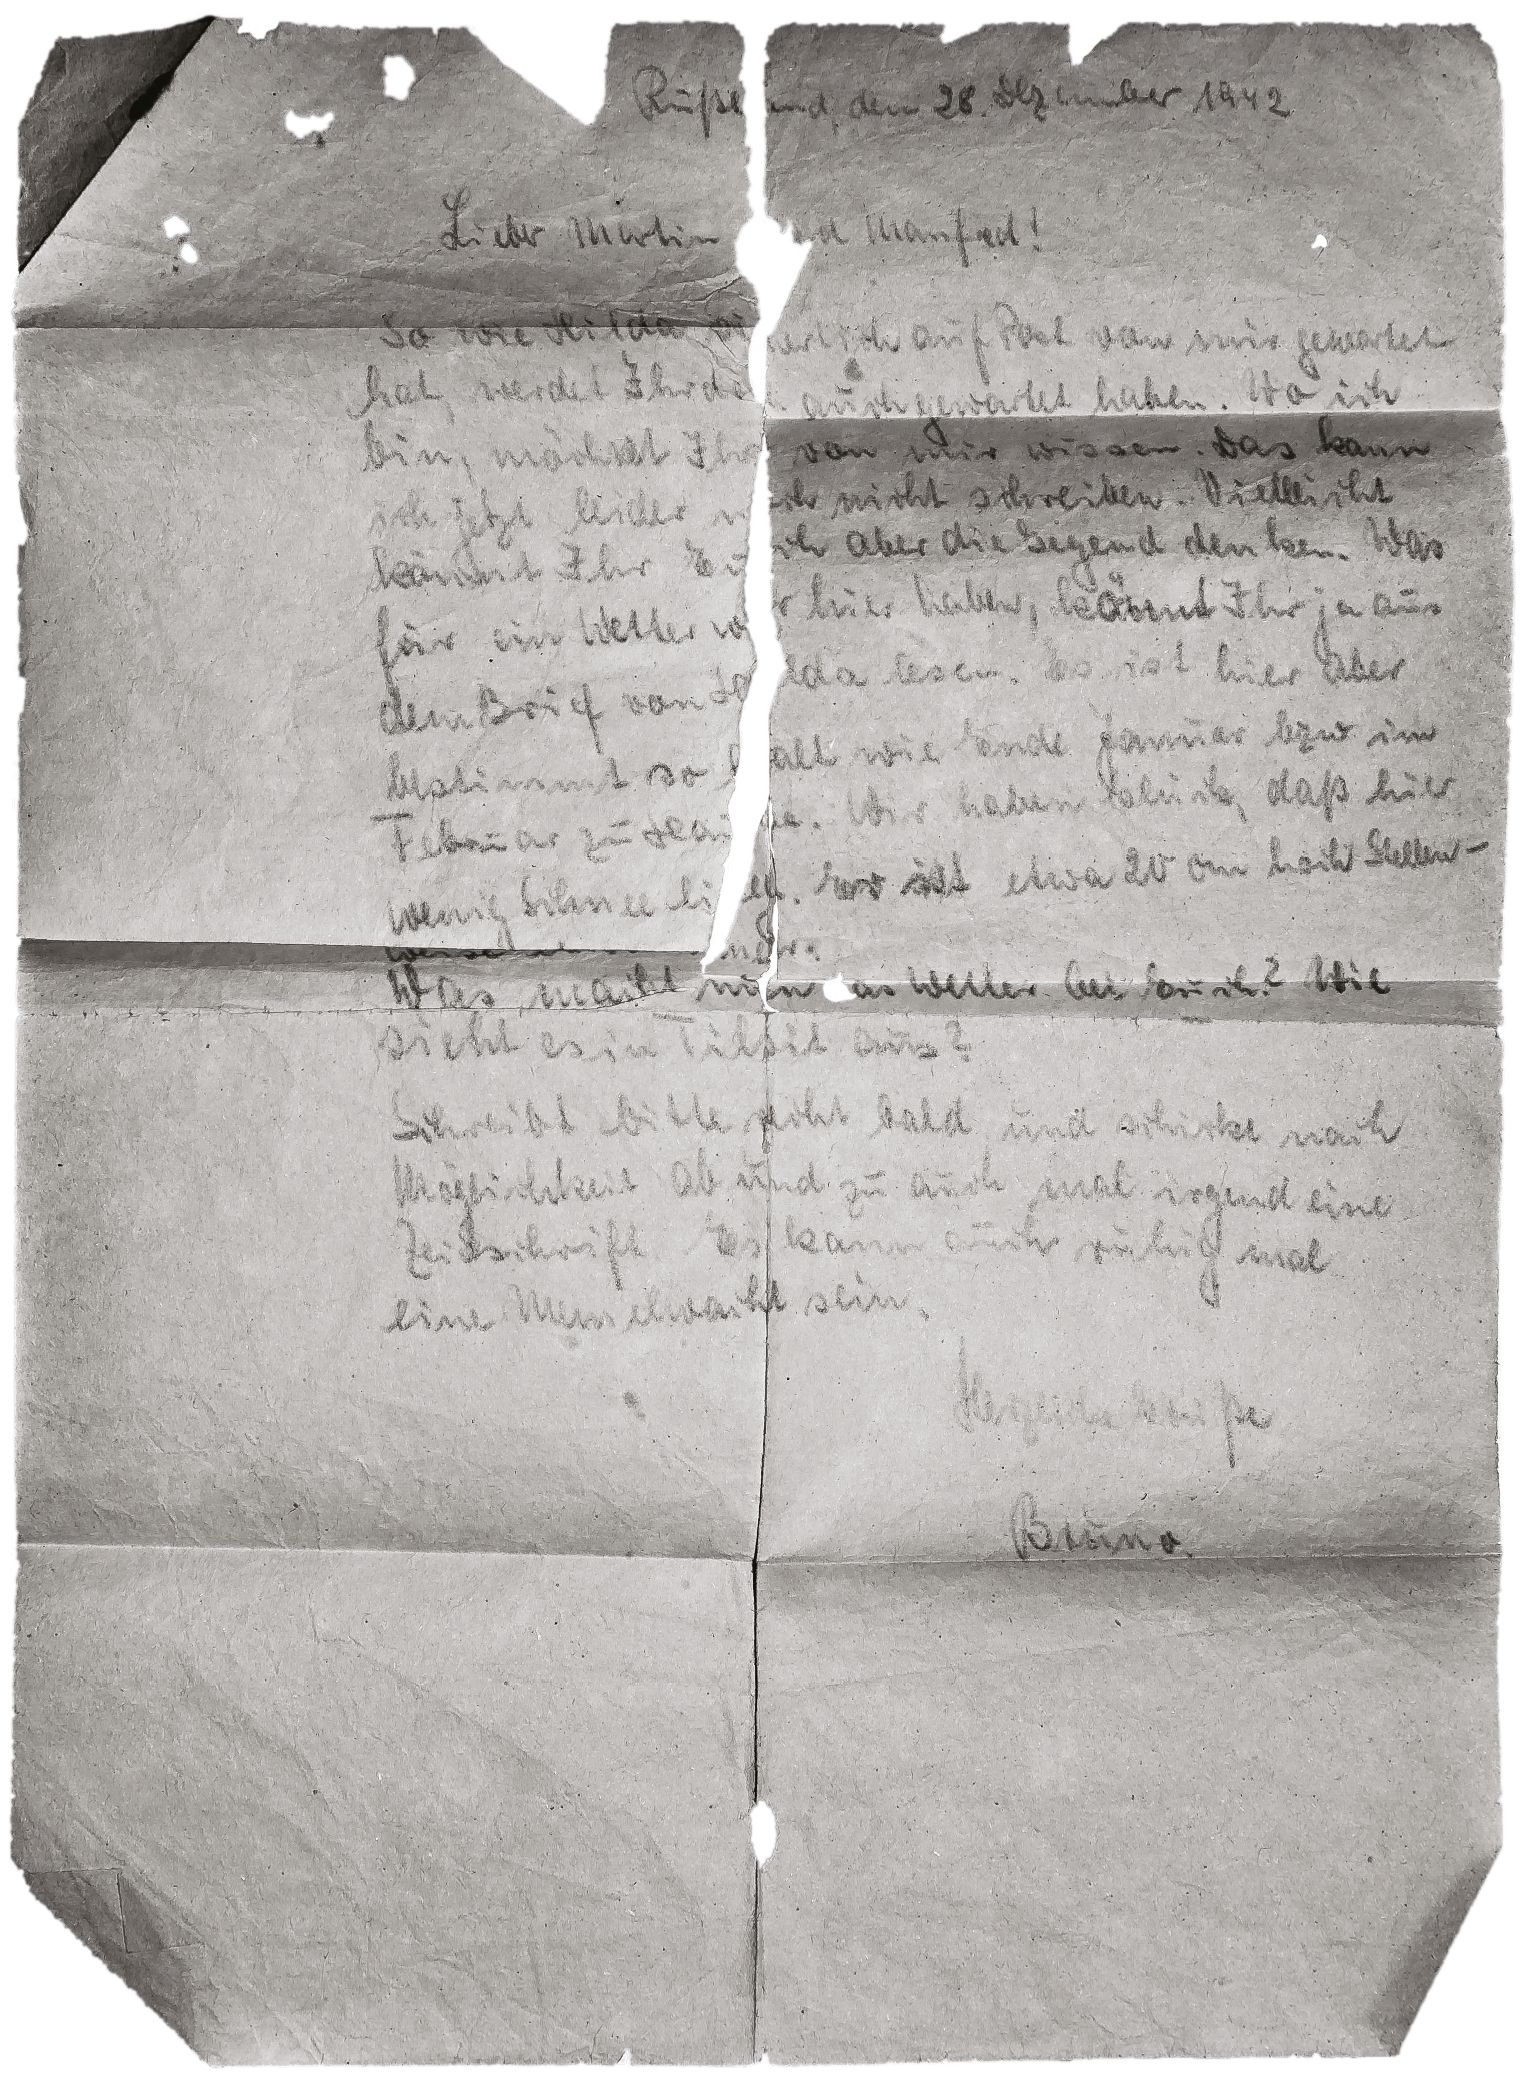 Ruße nd, den 28. Dezember 1942
Lieber Martin nd Manfred!
So wie Hilda si erlich auf Post von mir gewartet
hat, werdet Ihr do auch gewartet haben. Wo ich
bin, möchtet Ihr von mir wissen. Das kann
ich jetzt leider n ch nicht schreiben. Vielleicht
könnt Ihr Eu ch aber die Gegend denken. Was
für ein Wetter w r hier haben, könnt Ihr ja aus
dem Brief von H lda lesen. Es ist hier aber
bestimmt so kalt wie Ende Januar bzw im
Februar zu Hau e. Wir haben Glück, daß hier
wenig Schnee lieg. Er ist etwa 20 cm hoch Stellen-
weise
Was macht nun as Wetter bei Euch? Wie
sieht es in Tilsit aus?
Schreibt bitte recht bald und schickt nach
Möglichkeit ab und zu auch mal irgend eine
Zeitschrift. Es kann auch ruhig mal
eine Memelwacht sein.
Herzliche Grüße
Bruno.